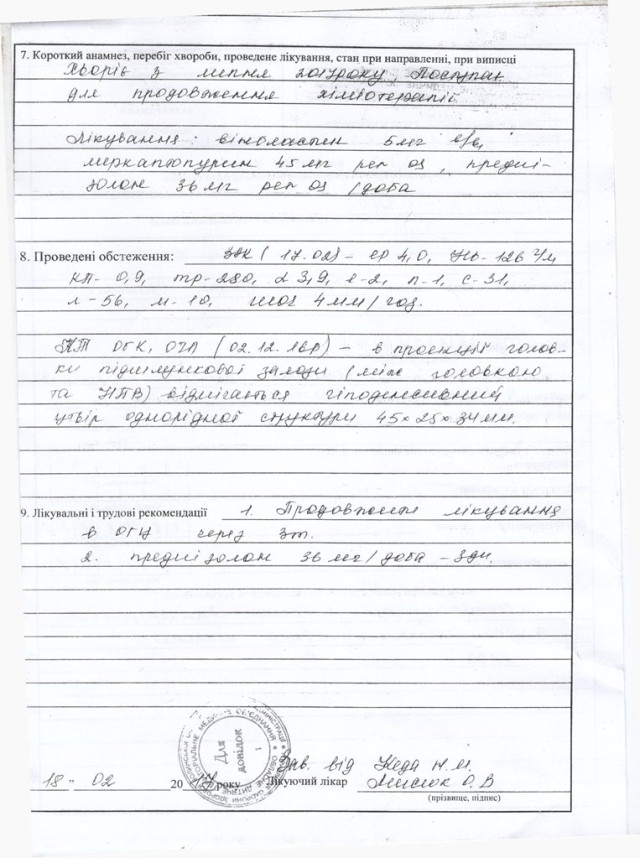 7. Короткий анамнез, перебіг хвороби, проведене лікування, стан при направленні, при виписці
Хворіє з липня 2017року. Поступає
для продовження хіміотерапії
Лікування: вінбластин 5мг в/в,
меркаптопурин 45 мг per os, предні-
золон 36 мг per os /доба
8. Проведені обстеження: ЗАК (17.02) – ер 4,0, Hb- 126 г/л,
КП- 0,9, тр-280, L 3,9, е-2, п-1, с-31,
л-56, м-10, шоє 4мм/год.
КТ ОГК, ОЧП (02.12.16р) – в проекції голов-
ки підшлункової залози (між головкою
та НПВ) відмічається гіподенсивний
утвір однорідної структури 45х25х34мм.
9. Лікувальні і трудові рекомендації 1. Продовжити лікування
в ОГЦ через 3т.
2. преднізолон 36 мг/доба – 3дн.
Для
довідок
1
Зав. від Кеда Н.М.
18 - 02 2017 року Лікуючий лікар О.В
(прізвище, підпис)